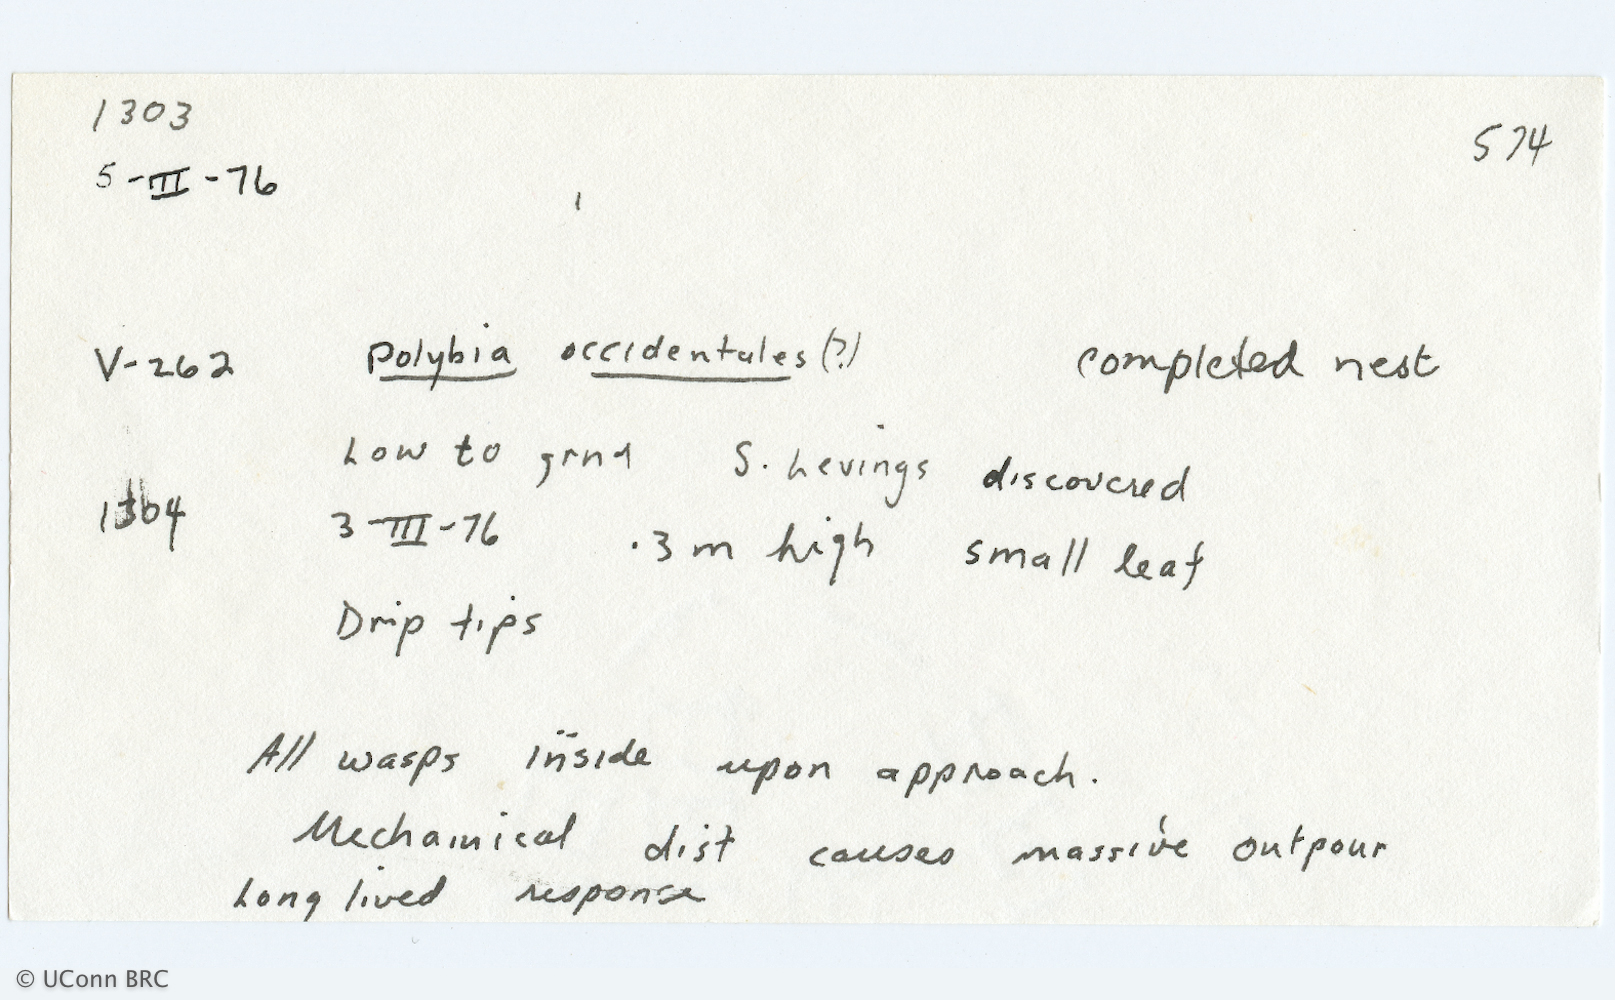 1303
574
5-III-76
V-262 Polybia occidentales (?) completed nest
Low to grnd S. Levings discovered
1304 3-III-76 .3 m high small leaf
Drip tips
All wasps inside upon approach.
Mechanical dist causes massive outpour
Long lived response
© UConn BRC